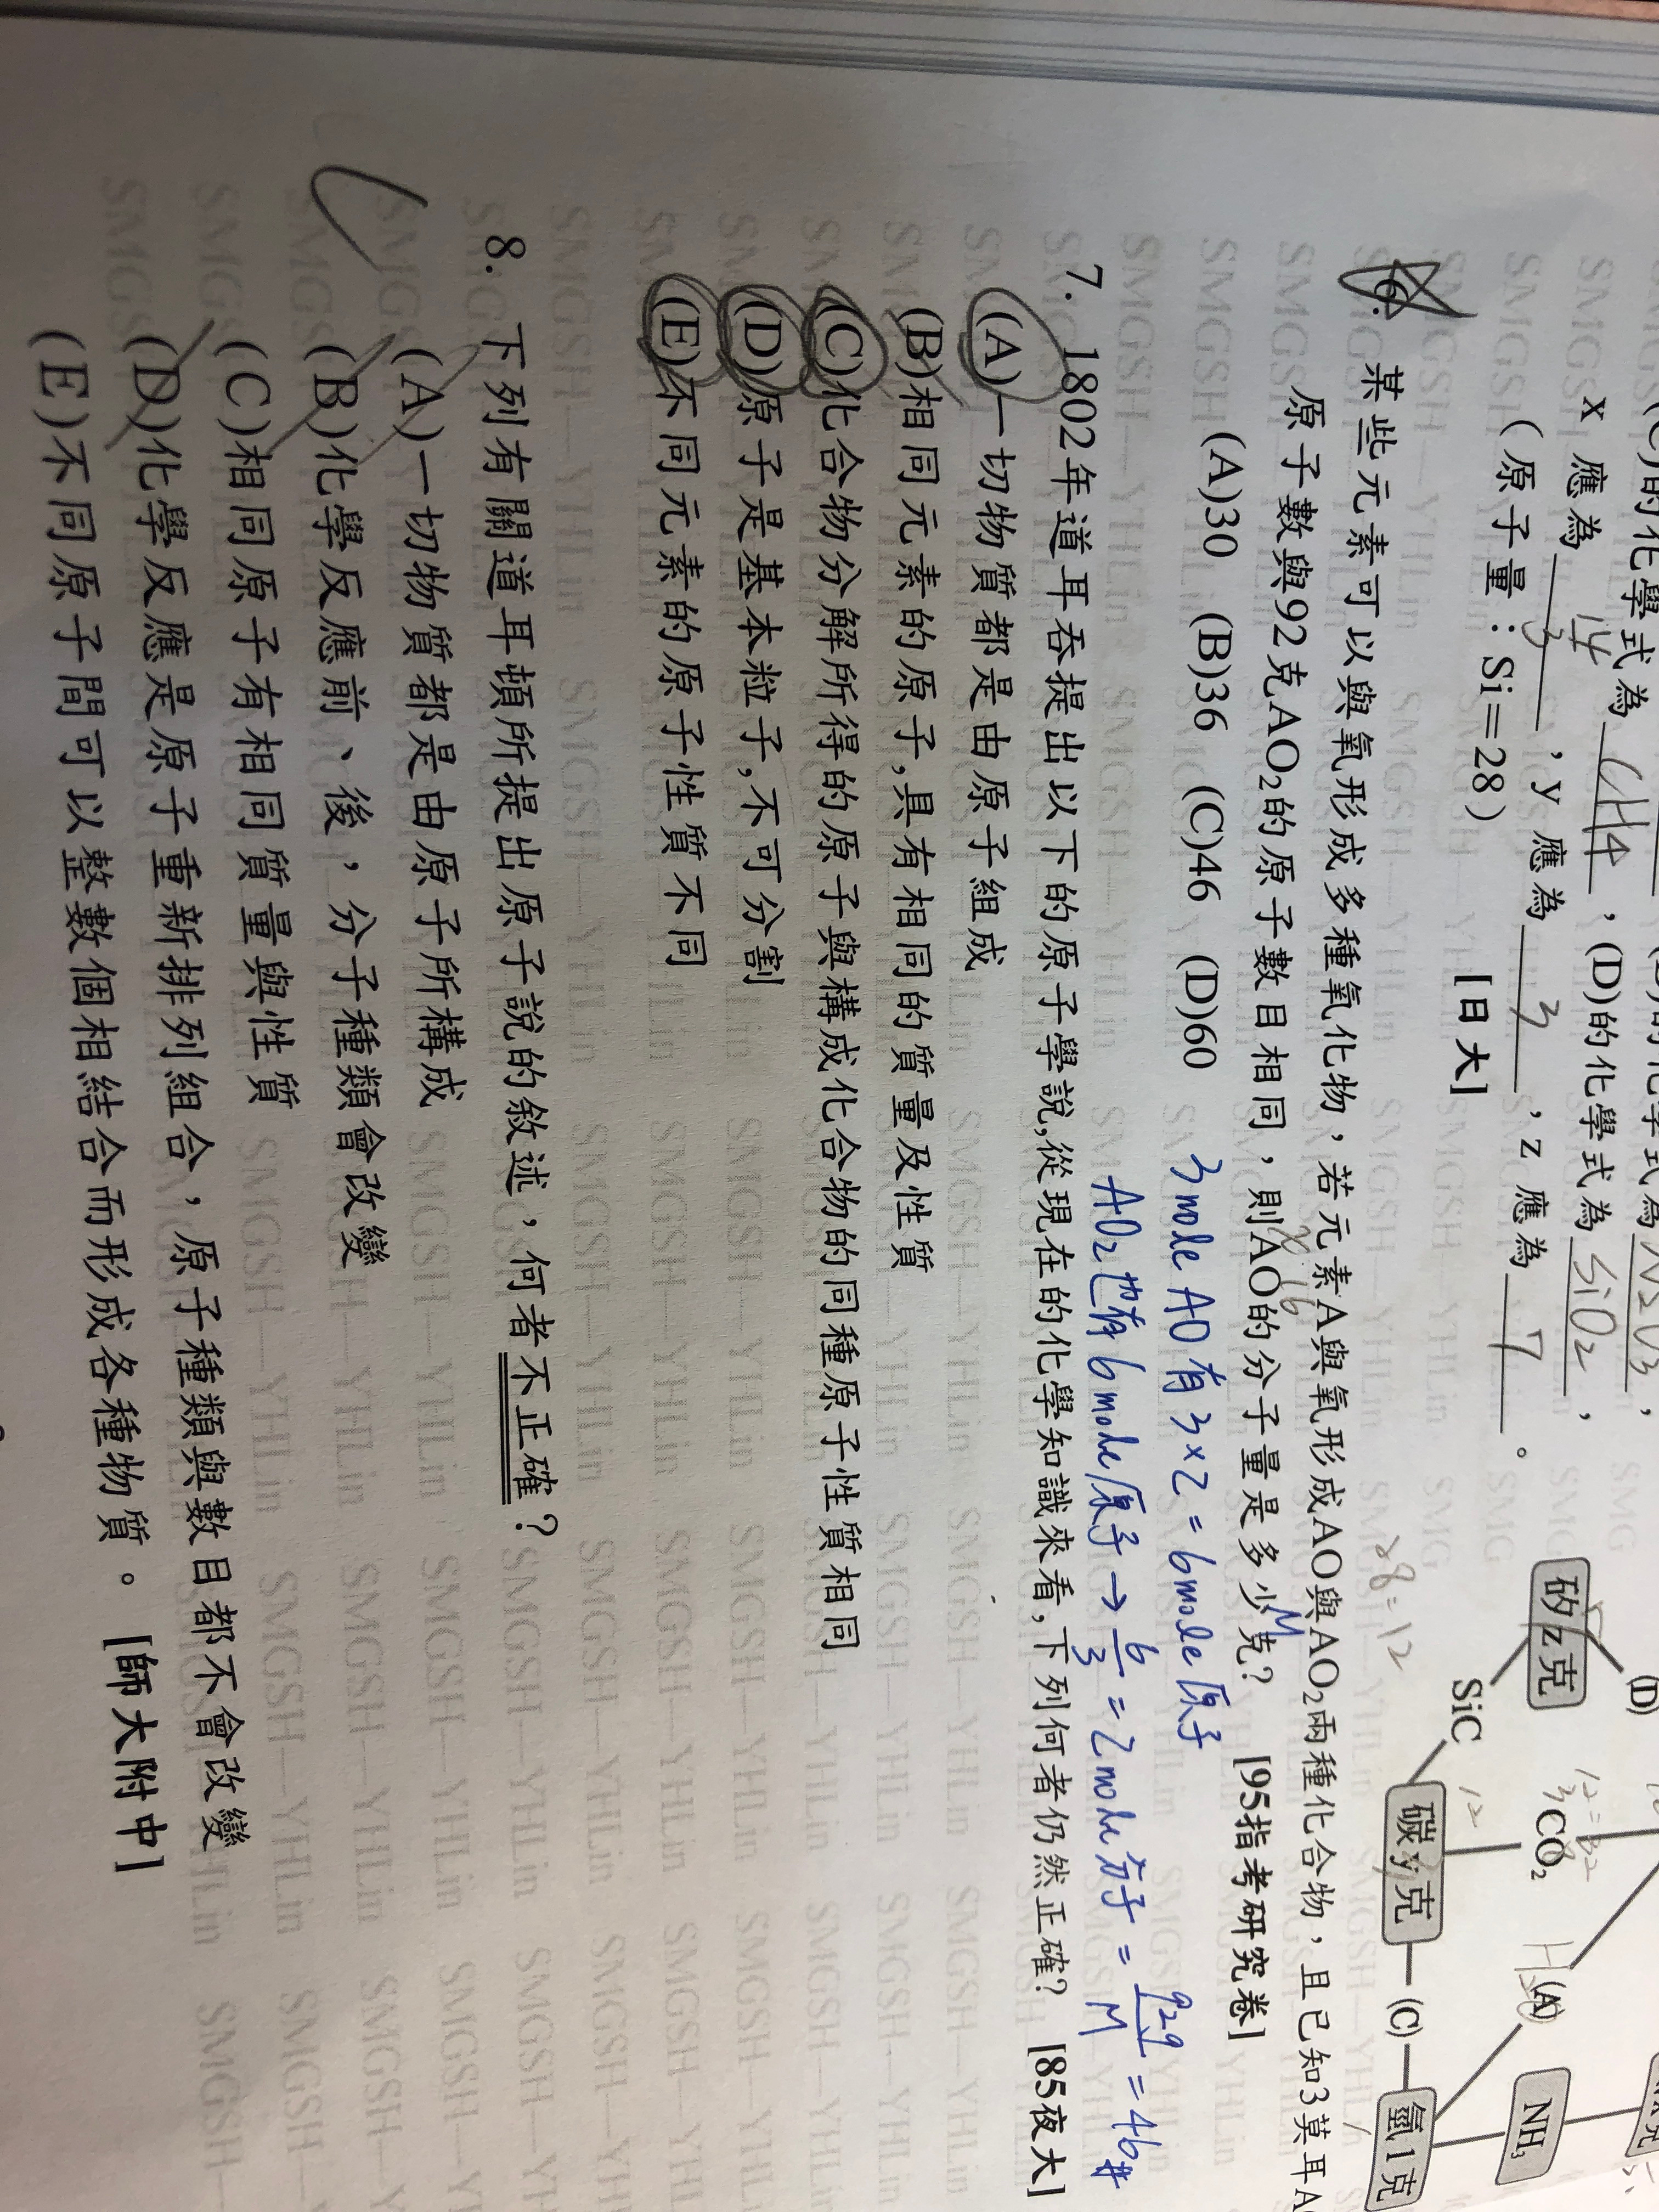 (C)的化學式為 CH4 ,(D)的化學式為 SiO2 ,
x 應為 3 ,y 應為 3 ,z 應為 7 。
(原子量:Si=28) [日大]
(D)
矽z克
SiC
CO2
12
碳y克
(C)
(A)
NH3
氫1克
28=12
6. 某些元素可以與氧形成多種氧化物,若元素A與氧形成AO與AO2兩種化合物,且已知3莫耳A
原子數與92克AO2的原子數目相同,則AO的分子量是多少克? [95指考研究卷]
(A)30 (B)36 (C)46 (D)60
3mole AO 有 3×2=6mole原子
AO2也有6mole原子→6/3=2mole分子=92g/M=46#
7. 1802年道耳吞提出以下的原子學說,從現在的化學知識來看,下列何者仍然正確? [85夜大]
(A)一切物質都是由原子組成
(B)相同元素的原子,具有相同的質量及性質
(C)化合物分解所得的原子與構成化合物的同種原子性質相同
(D)原子是基本粒子,不可分割
(E)不同元素的原子性質不同
8. 下列有關道耳頓所提出原子說的敘述,何者不正確?
(A)一切物質都是由原子所構成
(B)化學反應前、後,分子種類會改變
(C)相同原子有相同質量與性質
(D)化學反應是原子重新排列組合,原子種類與數目都不會改變
(E)不同原子間可以整數個相結合而形成各種物質。 [師大附中]
SMGSH—YHLin